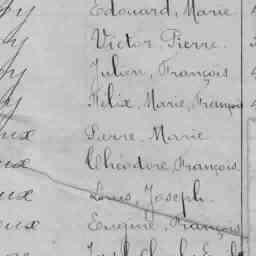 Edouard, Marie
Victor, Pierre.
Julien, François
Félix, Marie, François
Pierre Marie
Théodore, François
Louis, Joseph.
Eugène, François
Joseph